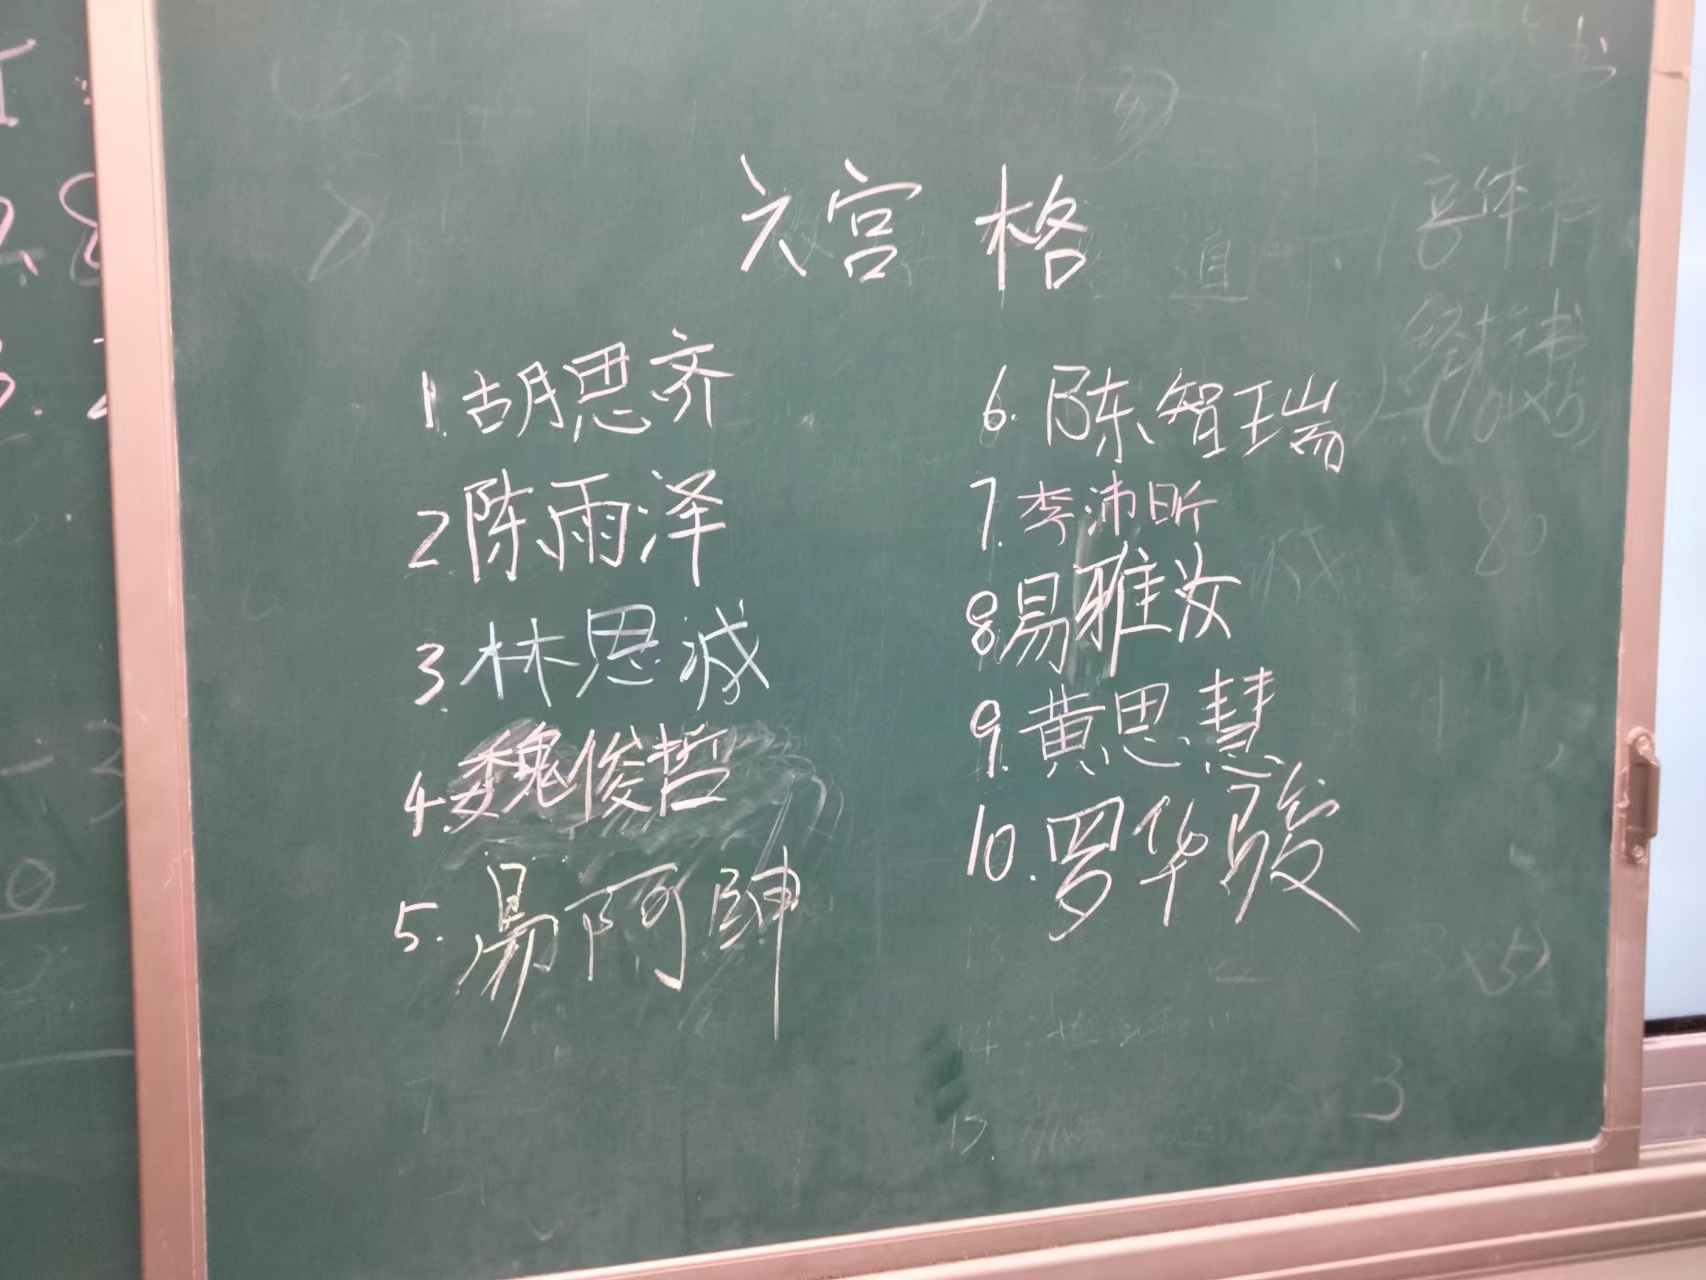 六宫格
1.胡思齐
2.陈雨泽
3.林思诚
4.魏俊哲
5.易阿
6.陈智瑞
7.李沛昕
8.易雅汝
9.黄思慧
10.罗华骏